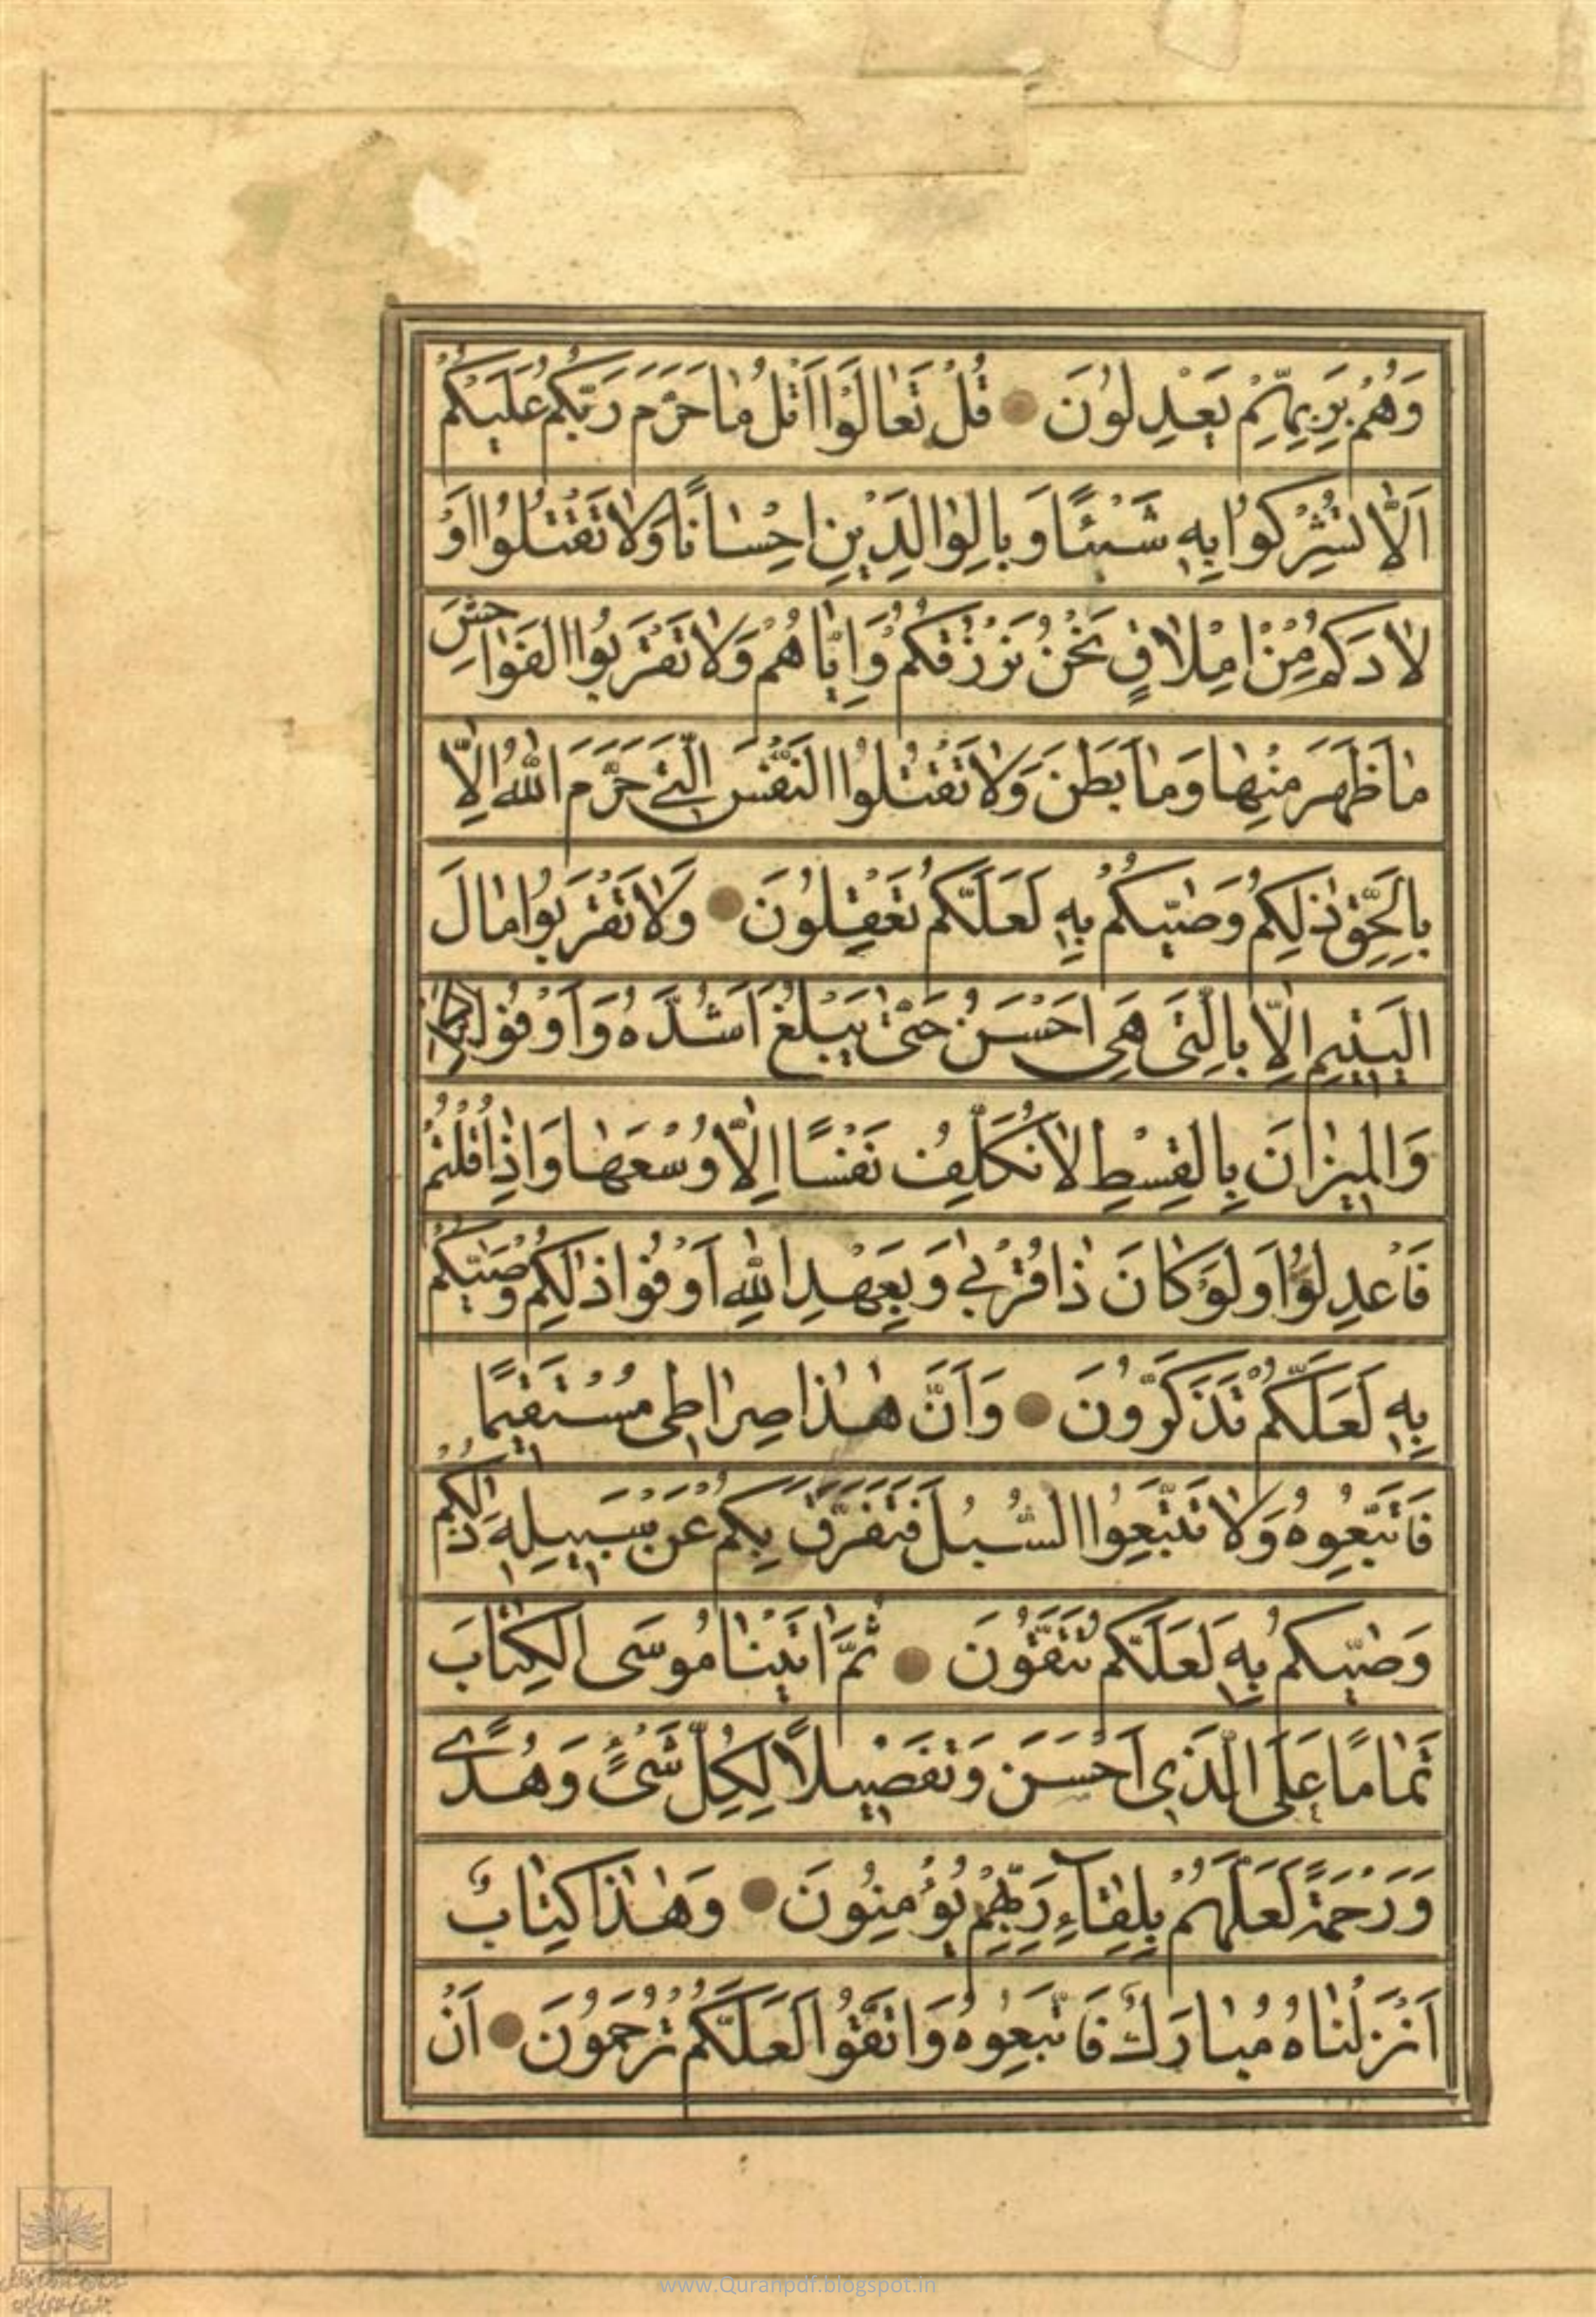 وَهُمْ بِرَبِّهِمْ يَعْدِلُونَ قُلْ تَعَالَوْا اَتْلُ مَا حَرَّمَ رَبُّكُمْ عَلَيْكُمْ
اَلَّا تُشْرِكُوا بِهِ شَيْئًا وَبِالْوَالِدَيْنِ اِحْسَانًا وَلَا تَقْتُلُوا اَوْ
لَادَكُمْ مِنْ اِمْلَاقٍ نَحْنُ نَرْزُقُكُمْ وَاِيَّاهُمْ وَلَا تَقْرَبُوا الْفَوَاحِشَ
مَا ظَهَرَ مِنْهَا وَمَا بَطَنَ وَلَا تَقْتُلُوا النَّفْسَ الَّتِي حَرَّمَ اللّٰهُ اِلَّا
بِالْحَقِّ ذٰلِكُمْ وَصّٰيكُمْ بِهِ لَعَلَّكُمْ تَعْقِلُونَ وَلَا تَقْرَبُوا مَالَ
الْيَتِيمِ اِلَّا بِالَّتِي هِيَ اَحْسَنُ حَتّٰى يَبْلُغَ اَشُدَّهُ وَاَوْفُوا الْكَيْلَ
وَالْمِيزَانَ بِالْقِسْطِ لَا نُكَلِّفُ نَفْسًا اِلَّا وُسْعَهَا وَاِذَا قُلْتُمْ
فَاعْدِلُوا وَلَوْ كَانَ ذَا قُرْبٰى وَبِعَهْدِ اللّٰهِ اَوْفُوا ذٰلِكُمْ وَصّٰيكُمْ
بِهِ لَعَلَّكُمْ تَذَكَّرُونَ وَاَنَّ هٰذَا صِرَاطِي مُسْتَقِيمًا
فَاتَّبِعُوهُ وَلَا تَتَّبِعُوا السُّبُلَ فَتَفَرَّقَ بِكُمْ عَنْ سَبِيلِهِ ذٰلِكُمْ
وَصّٰيكُمْ بِهِ لَعَلَّكُمْ تَتَّقُونَ ثُمَّ اٰتَيْنَا مُوسَى الْكِتَابَ
تَمَامًا عَلَى الَّذِي اَحْسَنَ وَتَفْصِيلًا لِكُلِّ شَيْءٍ وَهُدًى
وَرَحْمَةً لَعَلَّهُمْ بِلِقَاءِ رَبِّهِمْ يُؤْمِنُونَ وَهٰذَا كِتَابٌ
اَنْزَلْنَاهُ مُبَارَكٌ فَاتَّبِعُوهُ وَاتَّقُوا لَعَلَّكُمْ تُرْحَمُونَ اَنْ
www.Quranpdf.blogspot.in